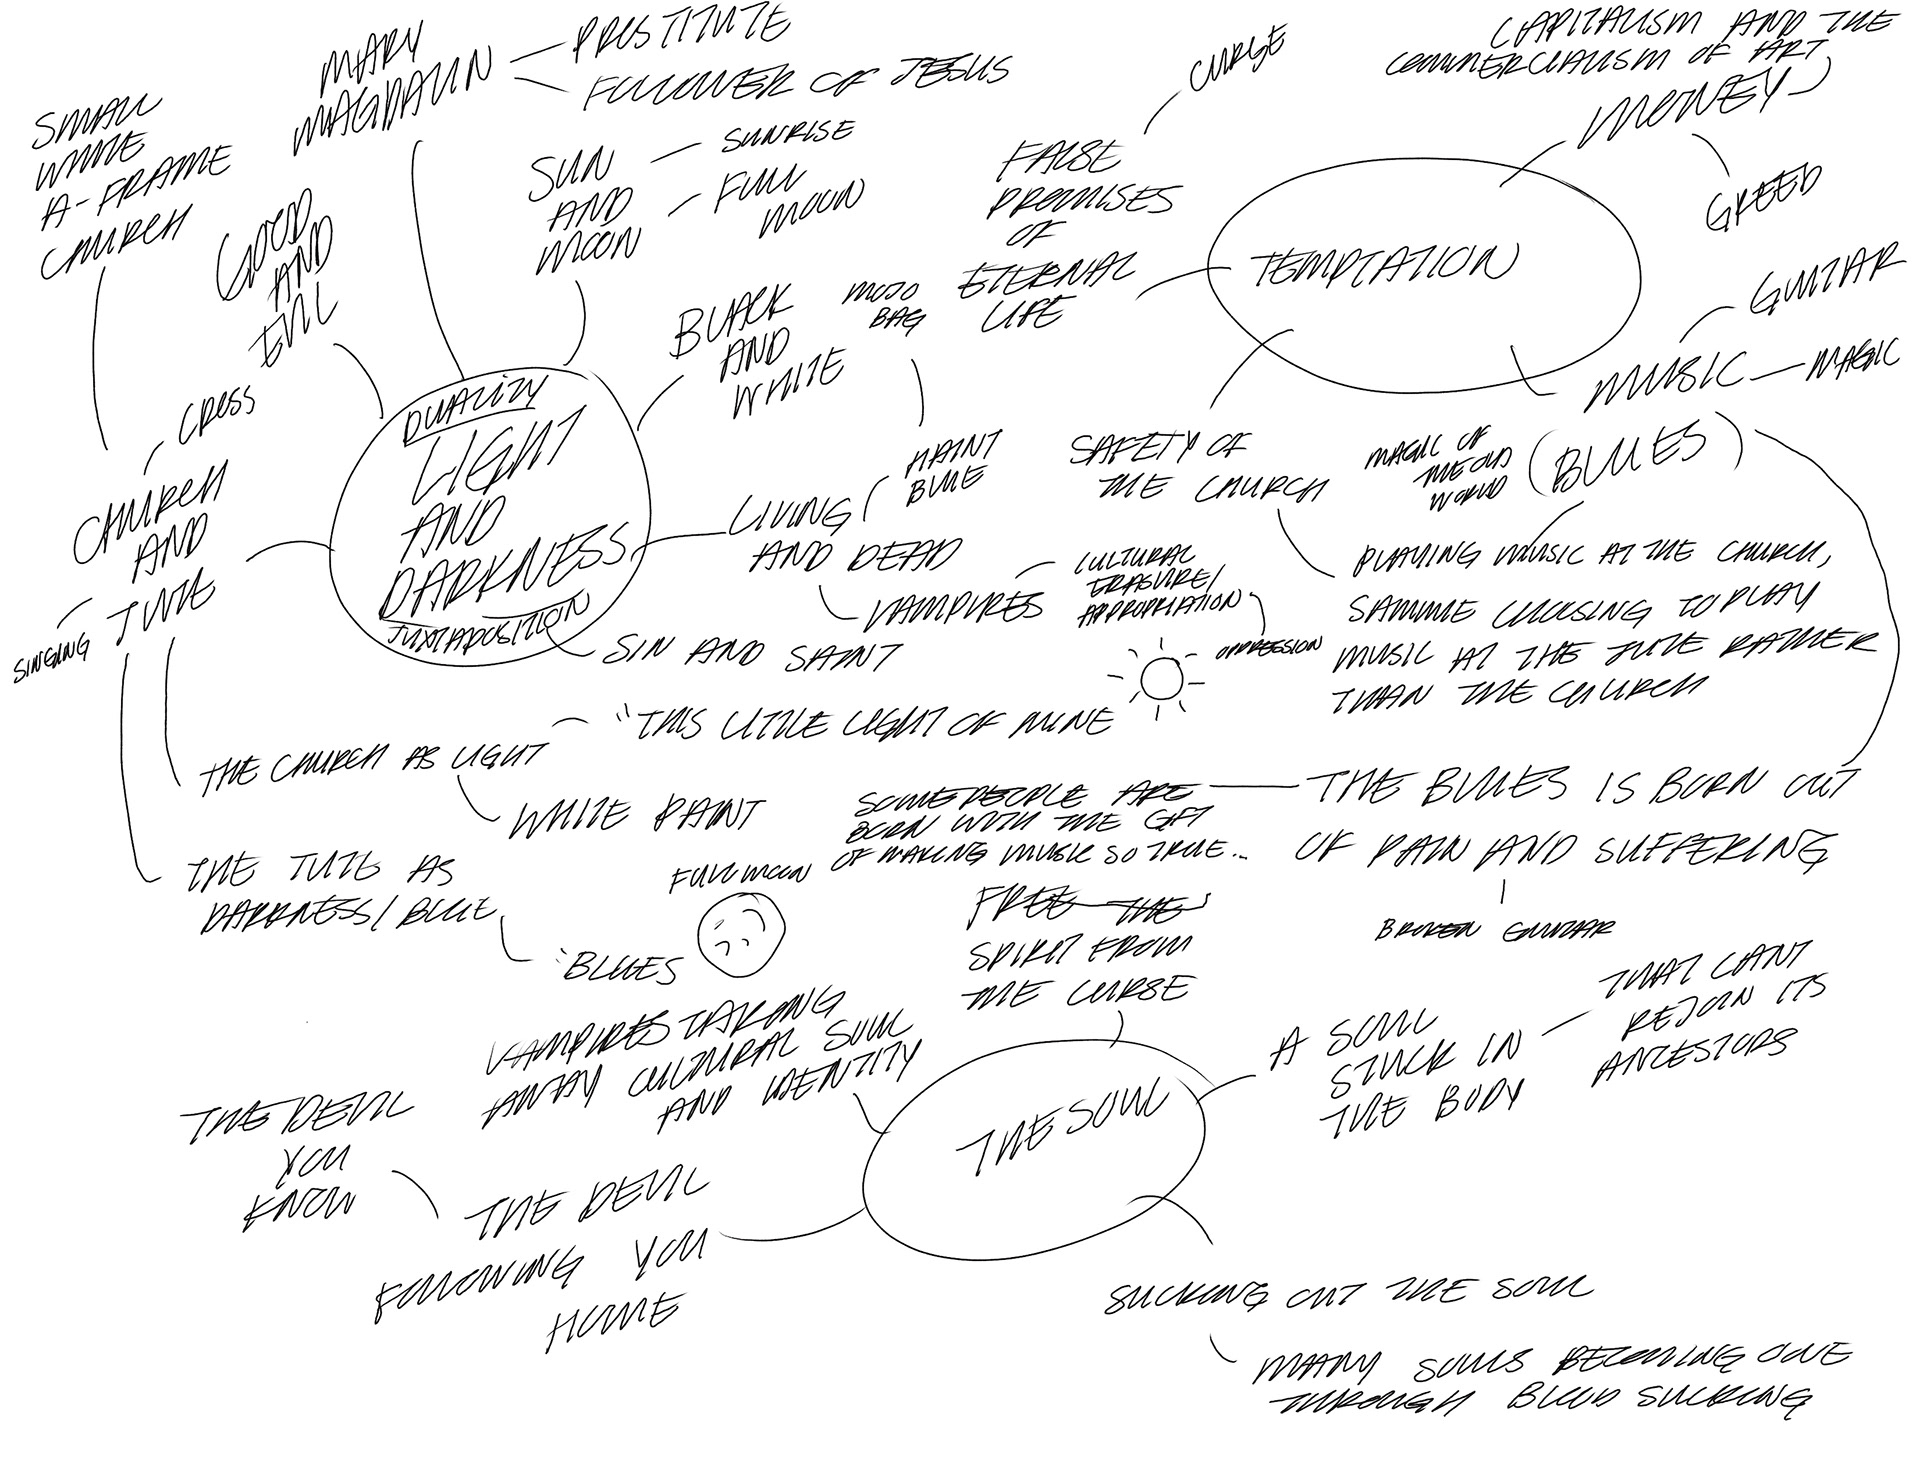 MARY
MAGDALIN
PROSTITUTE
FOLLOWER OF JESUS
SMALL
WHITE
A-FRAME
CHURCH
GOOD
AND
EVIL
SUN
AND
MOON
SUNRISE
FULL
MOON
BLACK
AND
WHITE
MOJO
BAG
CROSS
CHURCH
AND
JUKE
SINGING
DUALITY
LIGHT
AND
DARKNESS
JUXTAPOSITION
LIVING
AND DEAD
HAINT
BLUE
VAMPIRES
CULTURAL
ERASURE/
APPROPRIATION
OPPRESSION
SIN AND SAINT
THE CHURCH AS LIGHT
"THIS LITTLE LIGHT OF MINE
WHITE PAINT
THE JUKE AS
DARKNESS/BLUE
"BLUES
FULL MOON
CURSE
FALSE
PROMISES
OF
ETERNAL
LIFE
TEMPTATION
CAPITALISM AND THE
COMMERCIALISM OF ART
MONEY
GREED
GUITAR
MUSIC
MAGIC
(BLUES)
MAGIC OF
THE OLD
WORLD
SAFETY OF
THE CHURCH
PLAYING MUSIC AT THE CHURCH,
SAMMIE CHOOSING TO PLAY
MUSIC AT THE JUKE RATHER
THAN THE CHURCH
THE BLUES IS BORN OUT
OF PAIN AND SUFFERING
BROKEN GUITAR
SOME PEOPLE ARE
BORN WITH THE GIFT
OF MAKING MUSIC SO TRUE...
FREE THE
SPIRIT FROM
THE CURSE
THE SOUL
A SOUL
STUCK IN
THE BODY
THAT CANT
REJOIN ITS
ANCESTORS
VAMPIRES TAKING
AWAY CULTURAL SOUL
AND IDENTITY
THE DEVIL
YOU
KNOW
THE DEVIL
FOLLOWING YOU
HOME
SUCKING OUT THE SOUL
MANY SOULS BECOMING ONE
THROUGH BLOOD SUCKING